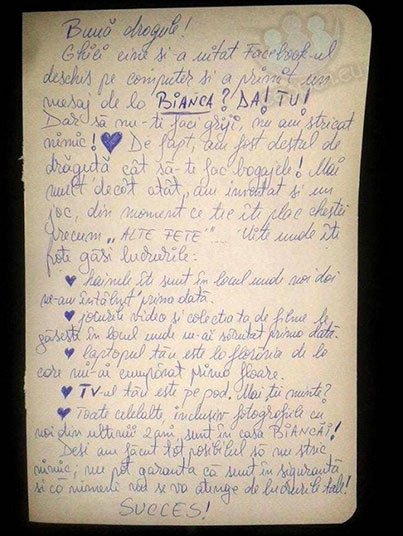 Bună dragule!
Ghici cine și-a uitat Facebook-ul
deschis pe computer și a primit un
mesaj de la BIANCA? DA! TU!
Dar să nu-ți faci griji, nu am stricat
nimic! De fapt, am fost destul de
drăguță cât să-ți fac bagajele! Mai
mult decât atât, am inventat și un
joc, din moment ce ție îți plac chestii
precum „ALTE FETE"... Uite unde îți
poți găsi lucrurile:
♥ hainele îți sunt în locul unde noi doi
ne-am întâlnit prima dată.
♥ jocurile video și colecția ta de filme le
găsești în locul unde m-ai sărutat prima dată.
♥ laptopul tău este la florăria de la
care mi-ai cumpărat prima floare.
♥ TV-ul tău este pe pod. Mai ții minte?
♥ Toate celelalte, inclusiv fotografiile cu
noi din ultimii 2 ani, sunt în casa BIANCĂI!
Deși am făcut tot posibilul să nu stric
nimic, nu pot garanta că sunt în siguranță
și că nimeni nu se va atinge de lucrurile tale!
SUCCES!